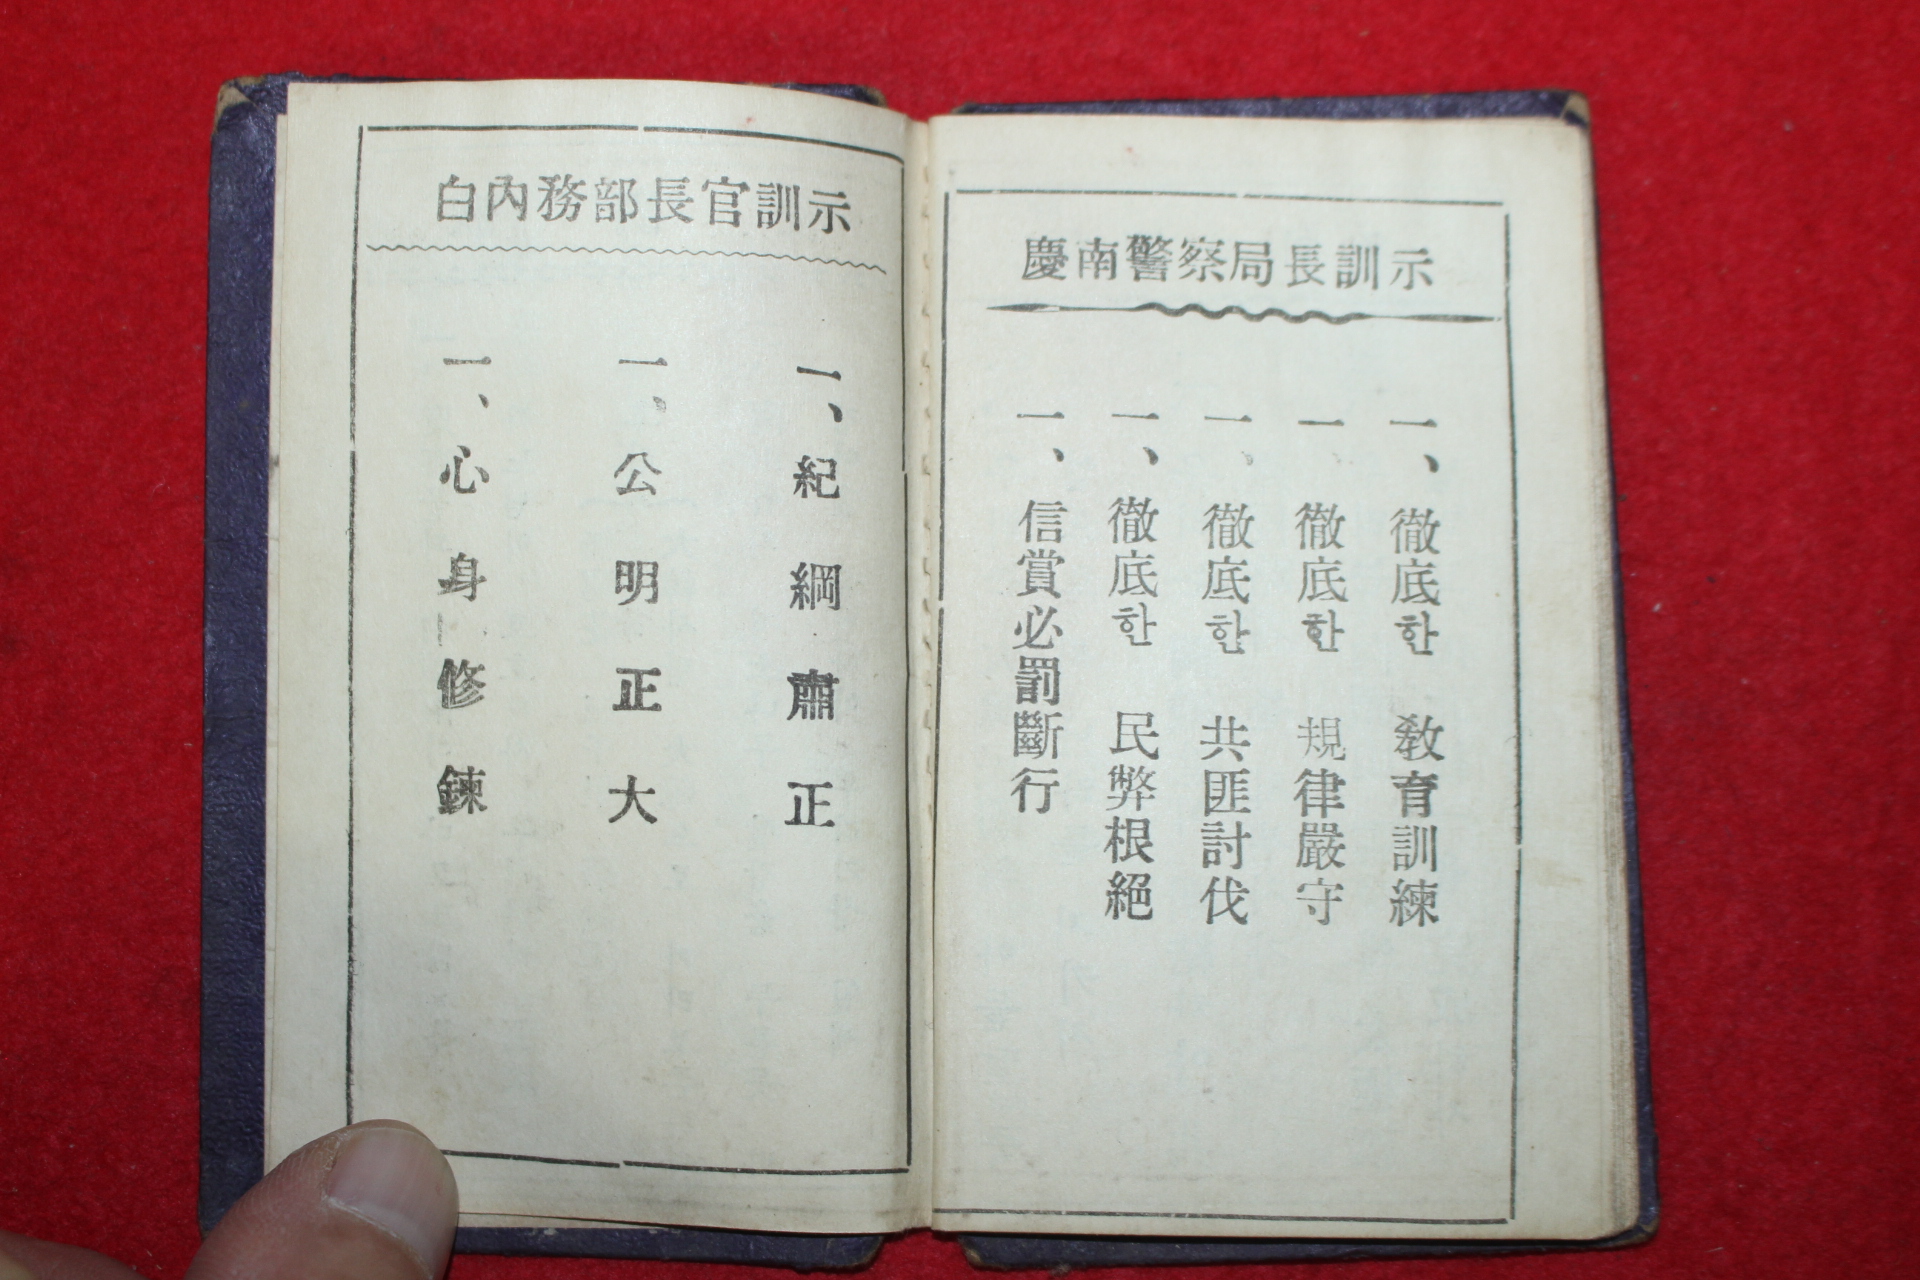 白內務部長官訓示
一、紀綱肅正
一、公明正大
一、心身修鍊
慶南警察局長訓示
一、徹底한 敎育訓練
一、徹底한 規律嚴守
一、徹底한 共匪討伐
一、徹底한 民弊根絕
一、信賞必罰斷行